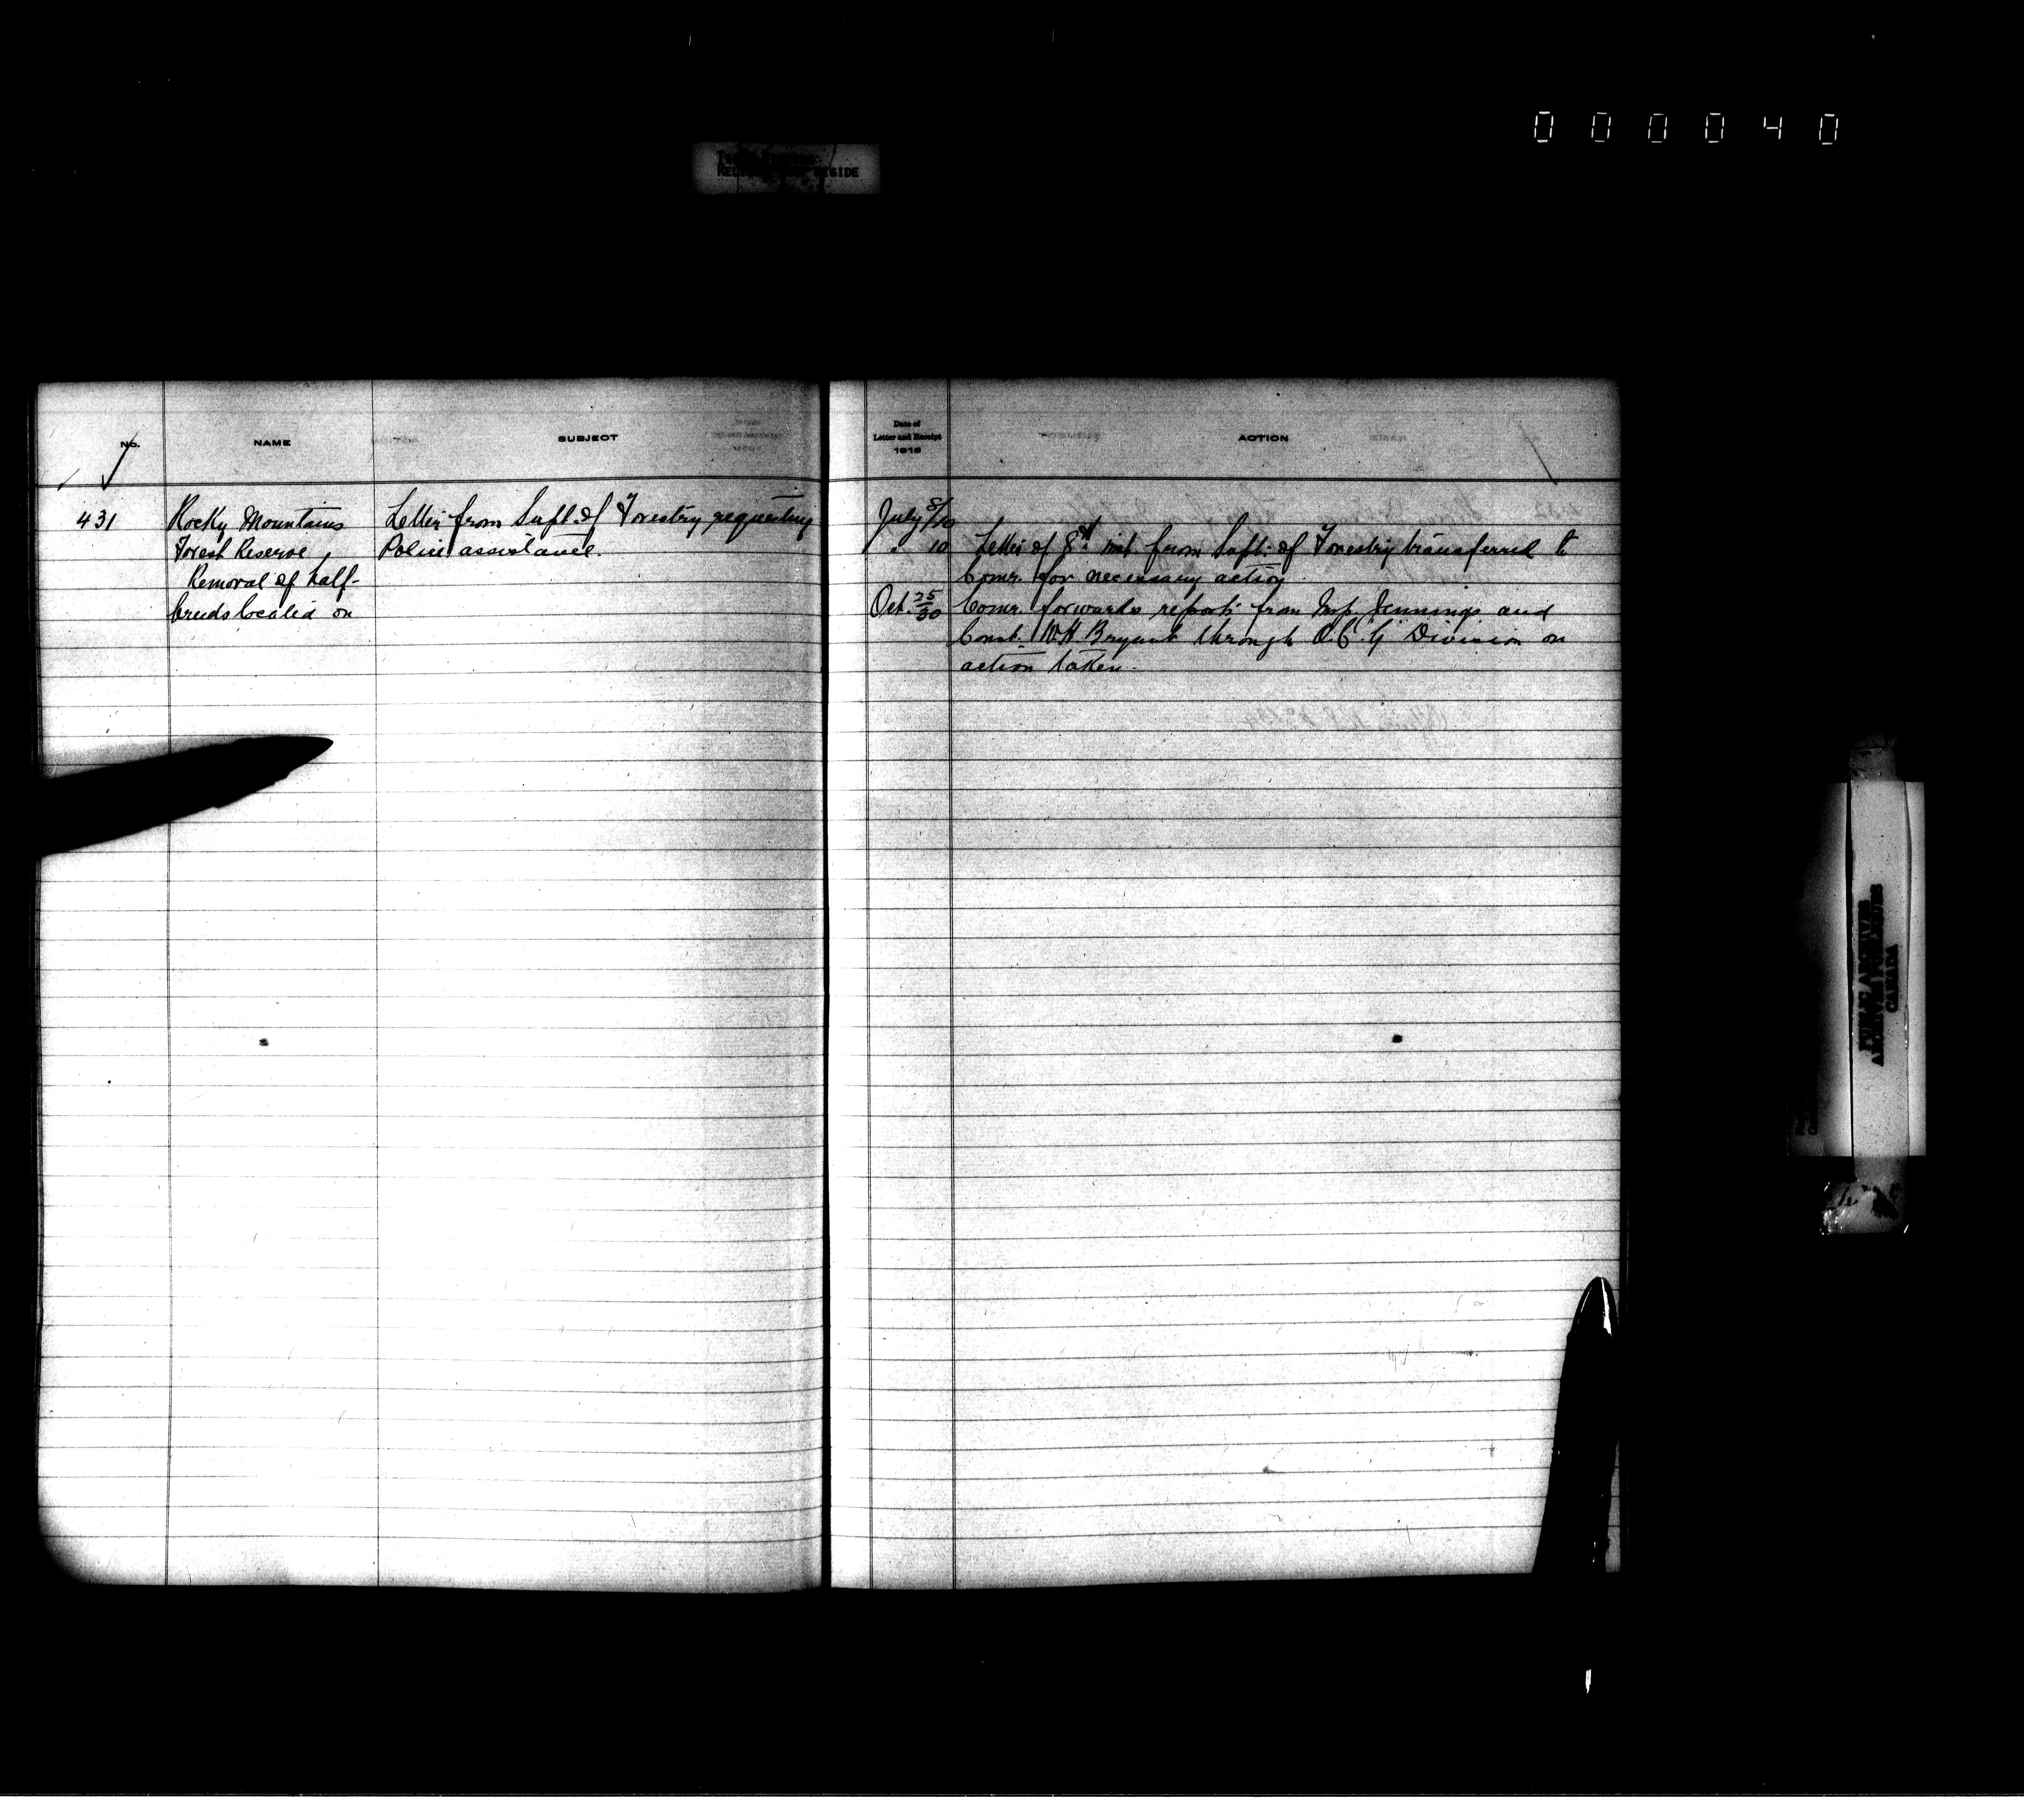 000040
No.
NAME
SUBJECT
431
Rocky Mountains
Forest Reserve,
Removal of half-
breeds located on
Letter from Supt. of Forestry requesting
Police assistance.
Date of
Letter and Receipt
1916
ACTION
July 8/10
" 10 Letter of 8th inst from Supt: of Forestry transferred to
Comr. for necessary action.
Oct. 25/30 Comr. forwards reports from Insp. Jennings and
Const. W.H. Bryant through O.C. "G" Division on
action taken.
PUBLIC ARCHIVES
ARCHIVES PUBLIQUES
CANADA